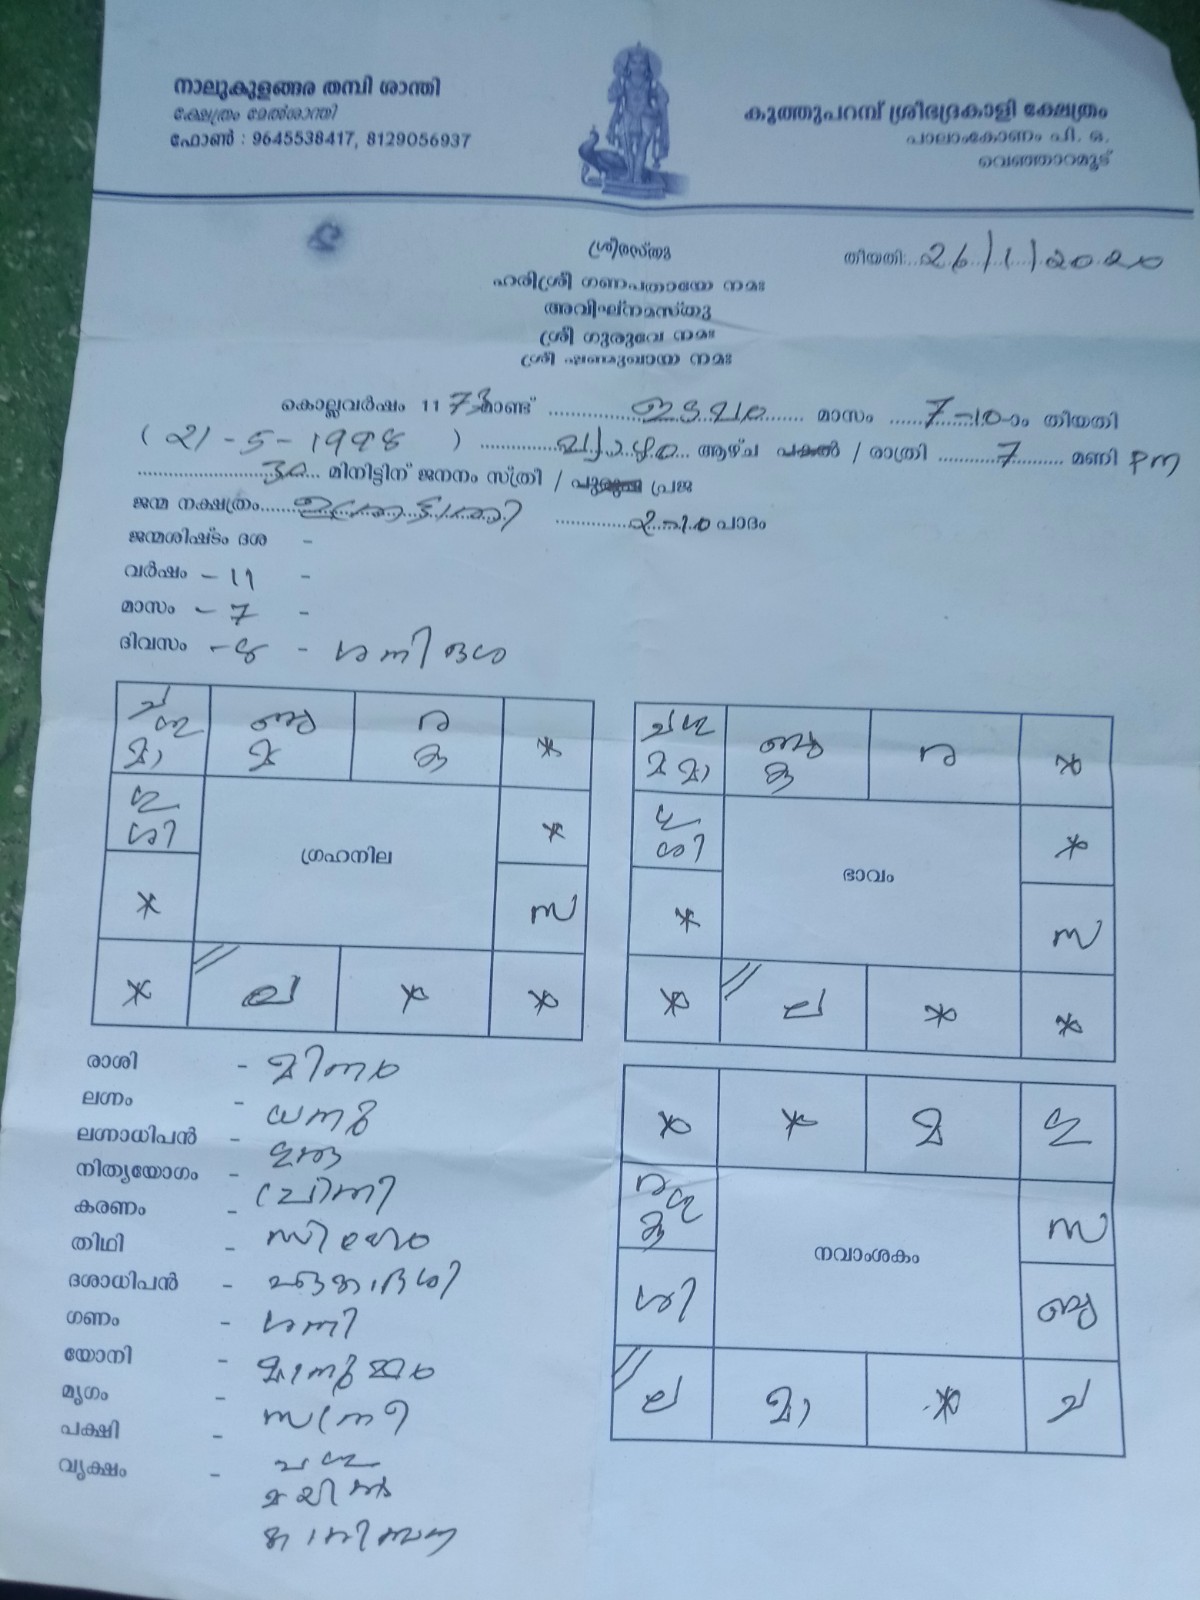 നാലുകുളങ്ങര തമ്പി ശാന്തി
ക്ഷേത്രം മേൽശാന്തി
ഫോൺ : 9645538417, 8129056937
കൂത്തുപറമ്പ് ശ്രീഭദ്രകാളി ക്ഷേത്രം
പാലാംകോണം പി. ഒ.
വെഞ്ഞാറമൂട്
ശ്രീരസ്തു
തീയതി: 26/1/2020
ഹരിശ്രീ ഗണപതായേ നമഃ
അവിഘ്നമസ്തു
ശ്രീ ഗുരുവേ നമഃ
ശ്രീ ഷണ്മുഖായ നമഃ
കൊല്ലവർഷം 1173 മാണ്ട് ഇടവം മാസം 7-ാം തിയതി
( 21-5-1998 ) വ്യാഴം ആഴ്ച പകൽ / രാത്രി 7 മണി PM
30 മിനിട്ടിന് ജനനം സ്ത്രീ / പുരുഷ പ്രജ
ജന്മ നക്ഷത്രം ഉത്രട്ടാതി 2-ാം പാദം
ജന്മശിഷ്ടം ദശ -
വർഷം - 11 -
മാസം - 7 -
ദിവസം - 8 - ശനി ദശ
ച ഗു മാ
ബു മ
ര കു
ശി
ഗ്രഹനില
സ
ല
ച ഗു മ മാ
ബു കു
ര
ശി
ഭാവം
സ
ല
രാശി - മീനം
ലഗ്നം - ധനു
ലഗ്നാധിപൻ - ഗുരു
നിത്യയോഗം - പ്രീതി
കരണം - സിംഹം
തിഥി - ഏകാദശി
ദശാധിപൻ - ശനി
ഗണം - മാനുഷം
യോനി - സ്ത്രീ
മൃഗം - പശു
പക്ഷി - മയിൽ
വൃക്ഷം - കരിമ്പന
മ
ര ഗു കു
നവാംശകം
സ
ശി
ബു
ല
മാ
ച